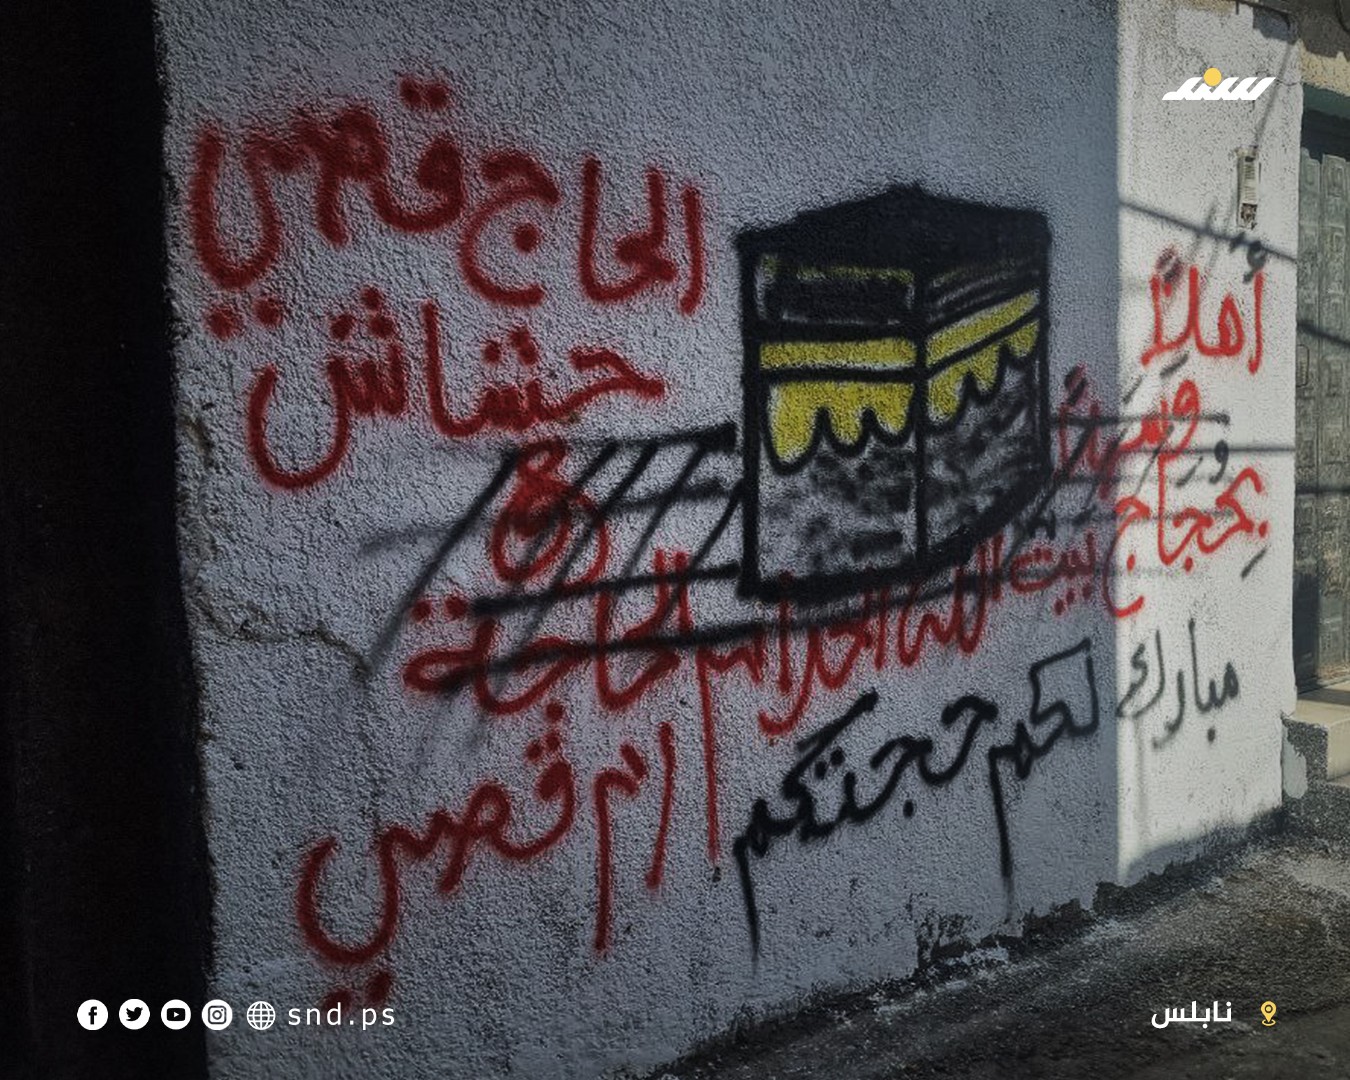 سند
أهلاً
وسهلاً
بِحجاج بيت الله الحرام
مبارك لكم حجتكم
الحاج قصي
حشاش
الحاجة
ام قصي
snd.ps
نابلس